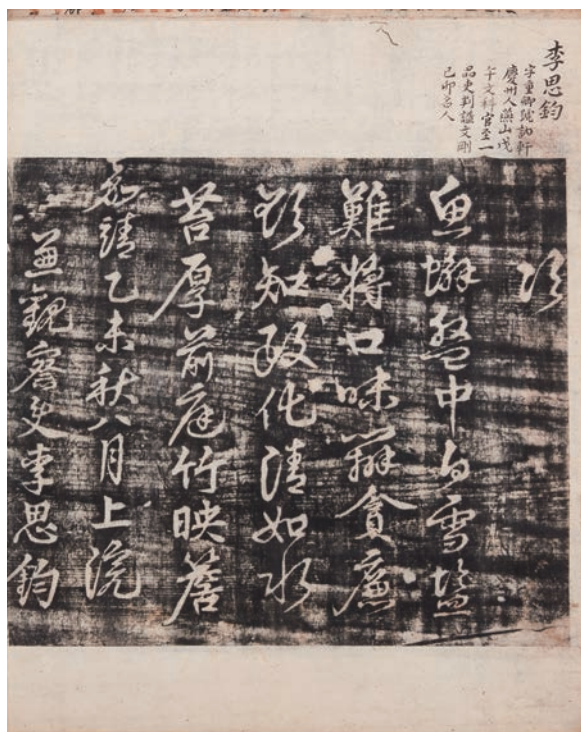 李思鈞
字重卿號訥軒
慶州人燕山戊
午文科官至一
品吏判諡文剛
己卯名人
次
魚蠏盤中白雪塩
難將口味辨貪廉
欲知政化清如水
苔厚前庭竹映簷
嘉靖乙未秋八月上浣
兼觀察使李思鈞